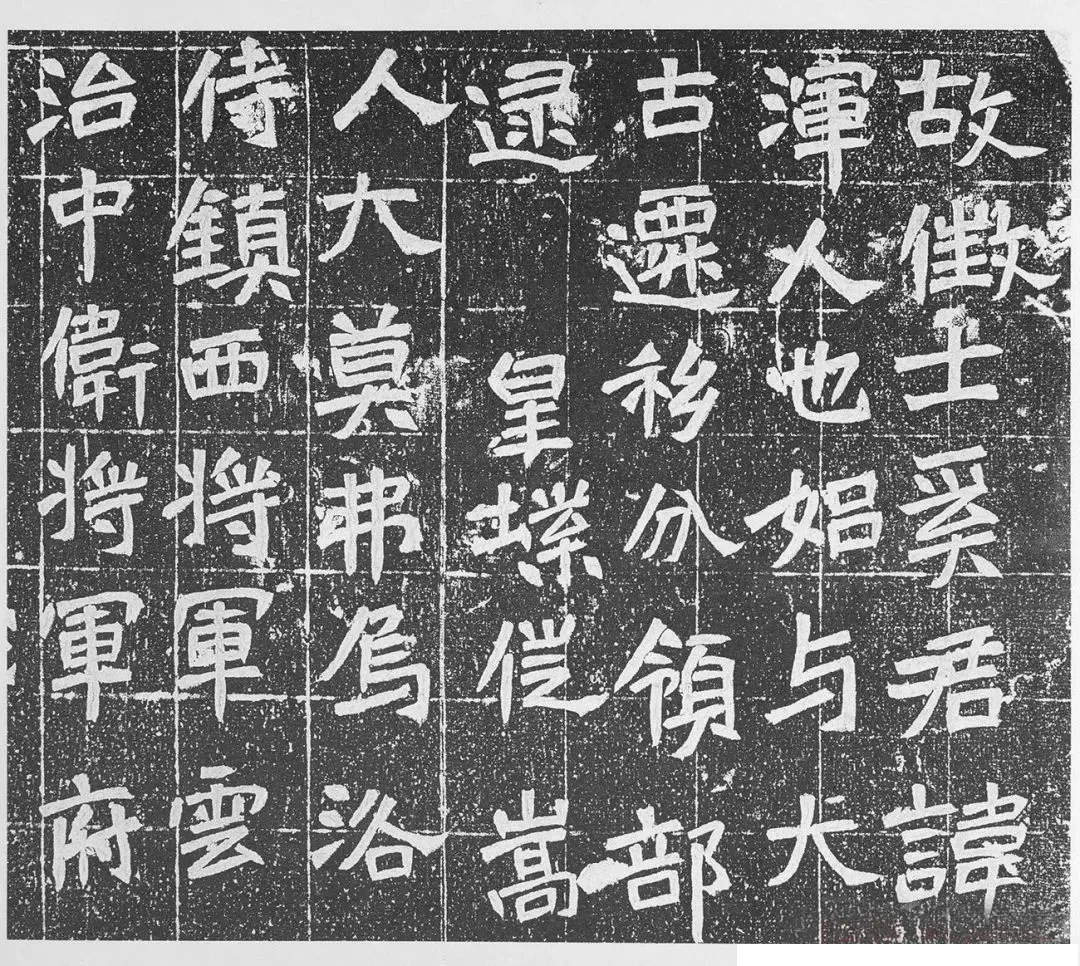 故徵士奚君諱
渾人也始与大
古遷移分領部
逮皇業徙嵩
人大莫弗烏洛
侍鎮西将軍雲
治中衛将軍府